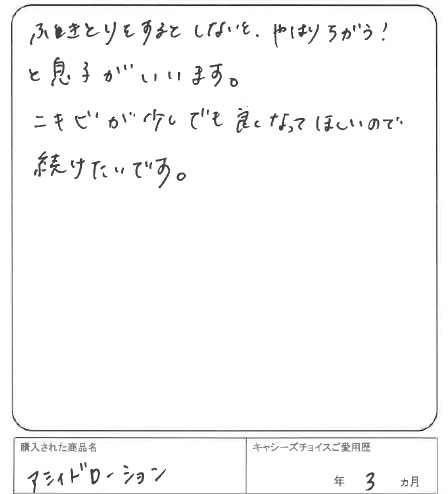 ふきとりをするとしないと、やはりちがう!
と息子がいいます。
ニキビが少しでも良くなってほしいので
続けたいです。
購入された商品名
アシィドローション
キャシーズチョイスご愛用歴
年 3 ヵ月